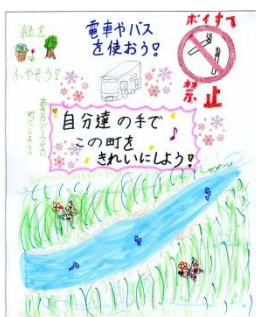 緑を
ふやそう!
電車やバス
を使おう!
ポイすて
禁止
自分達の手で
この町を
きれいにしよう!